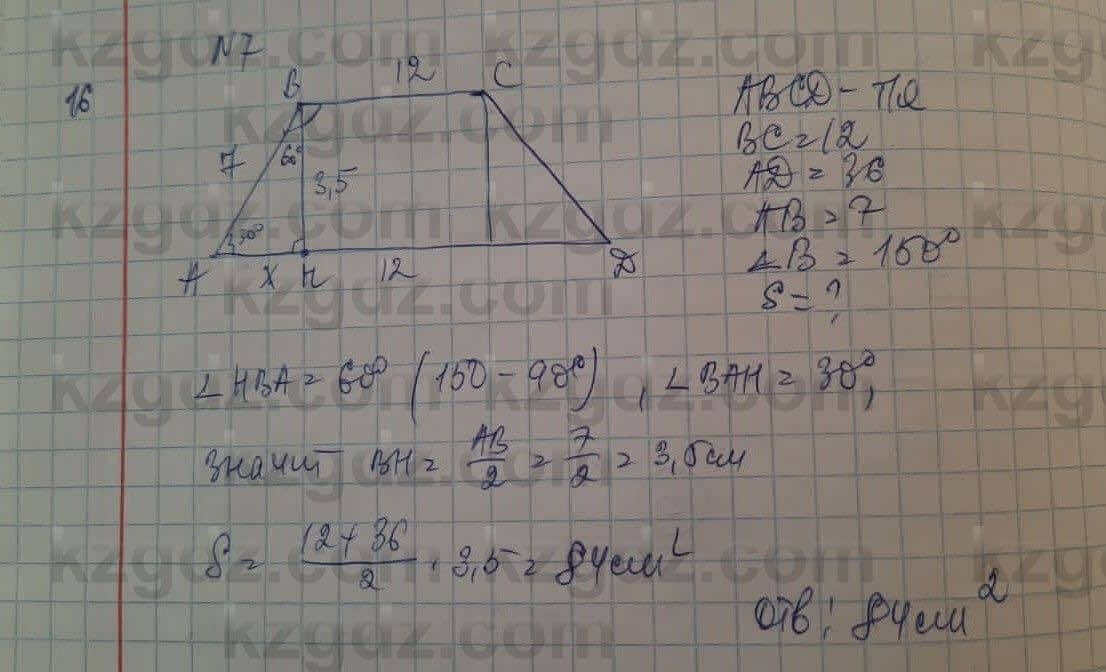 N7
16
B 12 C
7 60° 3,5
30°
A x H 12 D
ABCD -
BC = 12
AD = 36
AB = 7
∠B = 150°
S = ?
∠HBA = 60° (150 - 90°), ∠BAH = 30°,
значит BH = AB/2 = 7/2 = 3,5 см
S = (12 + 36)/2 · 3,5 = 84 см²
Отв: 84 см²
kzgdz.com